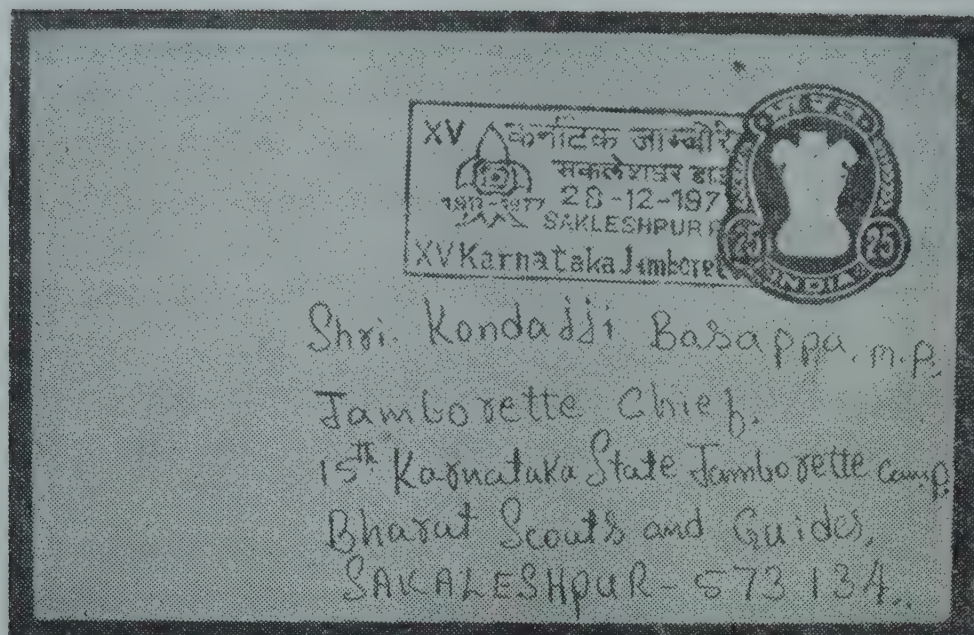 XV कर्नाटक जाम्बोरे
सकलेशपुर डा
1917-1977 28-12-197
SAKLESHPUR P
XV Karnataka Jamboret
25 25
INDIA
Shri. Kondajji Basappa. m.p.
Jamborette Chief.
15th Karnataka State Jamborette Camp
Bharat Scouts and Guides,
SAKALESHpUR - 573 134..